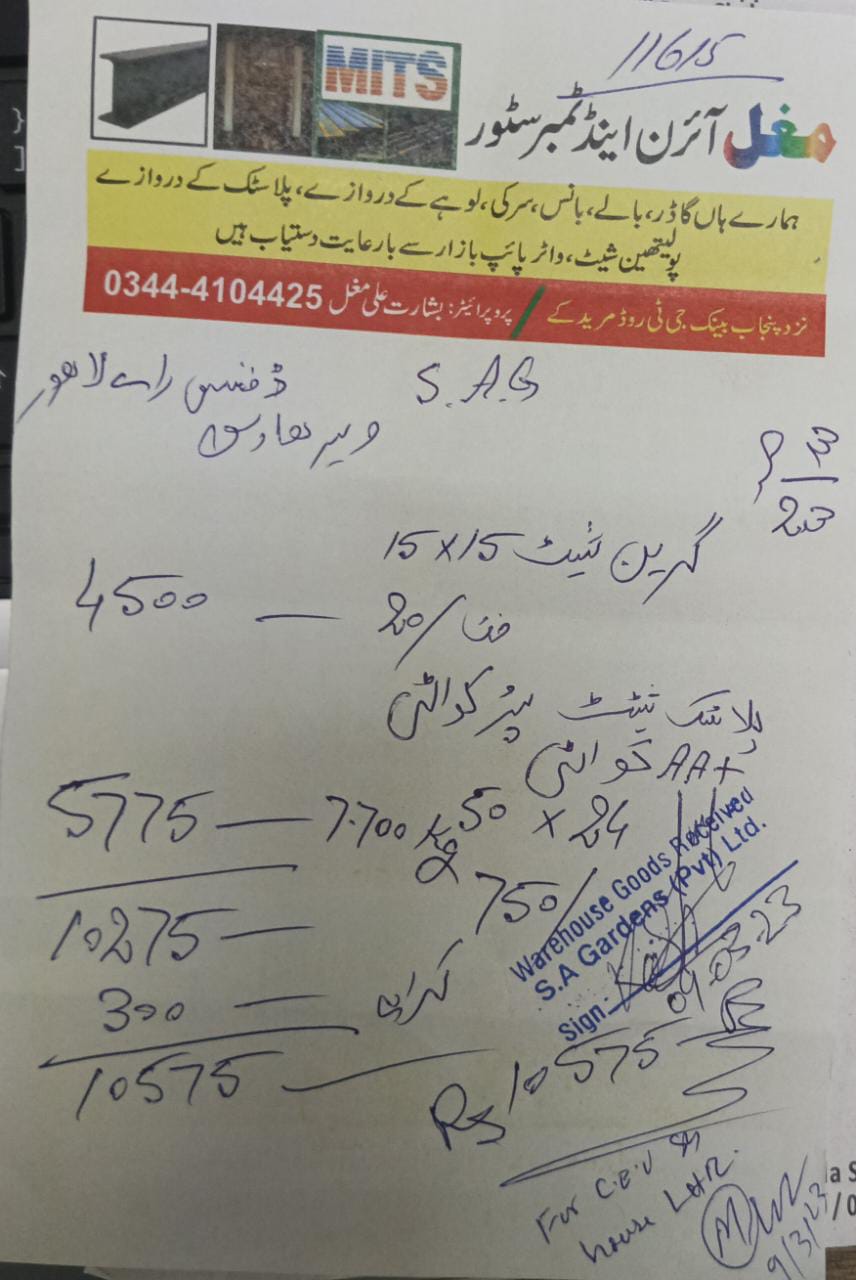 11615
MITS
مغل آئرن اینڈ ٹمبر سٹور
ہمارے ہاں گاڈر، بالے، بانس، سرکی، لوہے کے دروازے، پلاسٹک کے دروازے
پولیتھین شیٹ، واٹر پائپ بازار سے بارعایت دستیاب ہیں
نزد پنجاب بینک جی ٹی روڈ مریدکے / پروپرائیٹر: بشارت علی مغل 0344-4104425
S.A.G
ڈفنس راے لاھور
ویر ھاوس
9 3
23
گرین نیٹ 15x15
فٹ /20 — 4500
پلاسٹک نیٹ سپر کوالٹی
AA+ کوالٹی
50 x 24
7.700 kg — 5775
750/
10275 —
کرایہ — 300
10575
Warehouse Goods Received
S.A Gardens (Pvt) Ltd.
Sign-
09.03.23
Rs 10575
For C.E.O
house LHR.
9/3/23
a S
/ 0